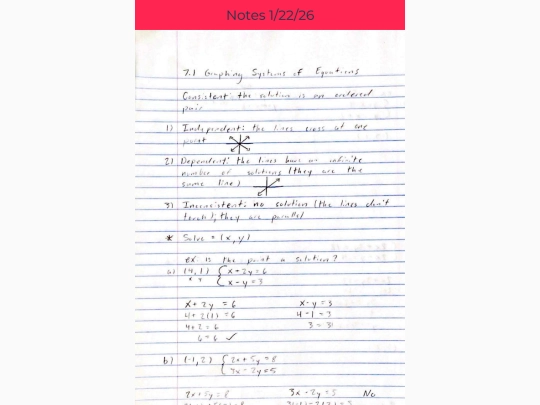 Notes 1/22/26
7.1 Graphing Systems of Equations
Consistent: the solution is an ordered
pair
1) Independent: the lines cross at one
point
2) Dependent: the lines have an infinite
number of solutions (they are the
same line)
3) Inconsistent: no solution (the lines don't
touch), they are parallel
* Solve = (x, y)
ex: is the point a solution?
a) (4, 1) { x + 2y = 6
x y { x - y = 3
x + 2y = 6 x - y = 3
4 + 2(1) = 6 4 - 1 = 3
4 + 2 = 6 3 = 3!
6 = 6 ✓
b) (-1, 2) { 2x + 5y = 8
{ 3x - 2y = 5
2x + 5y = 8 3x - 2y = 5 No